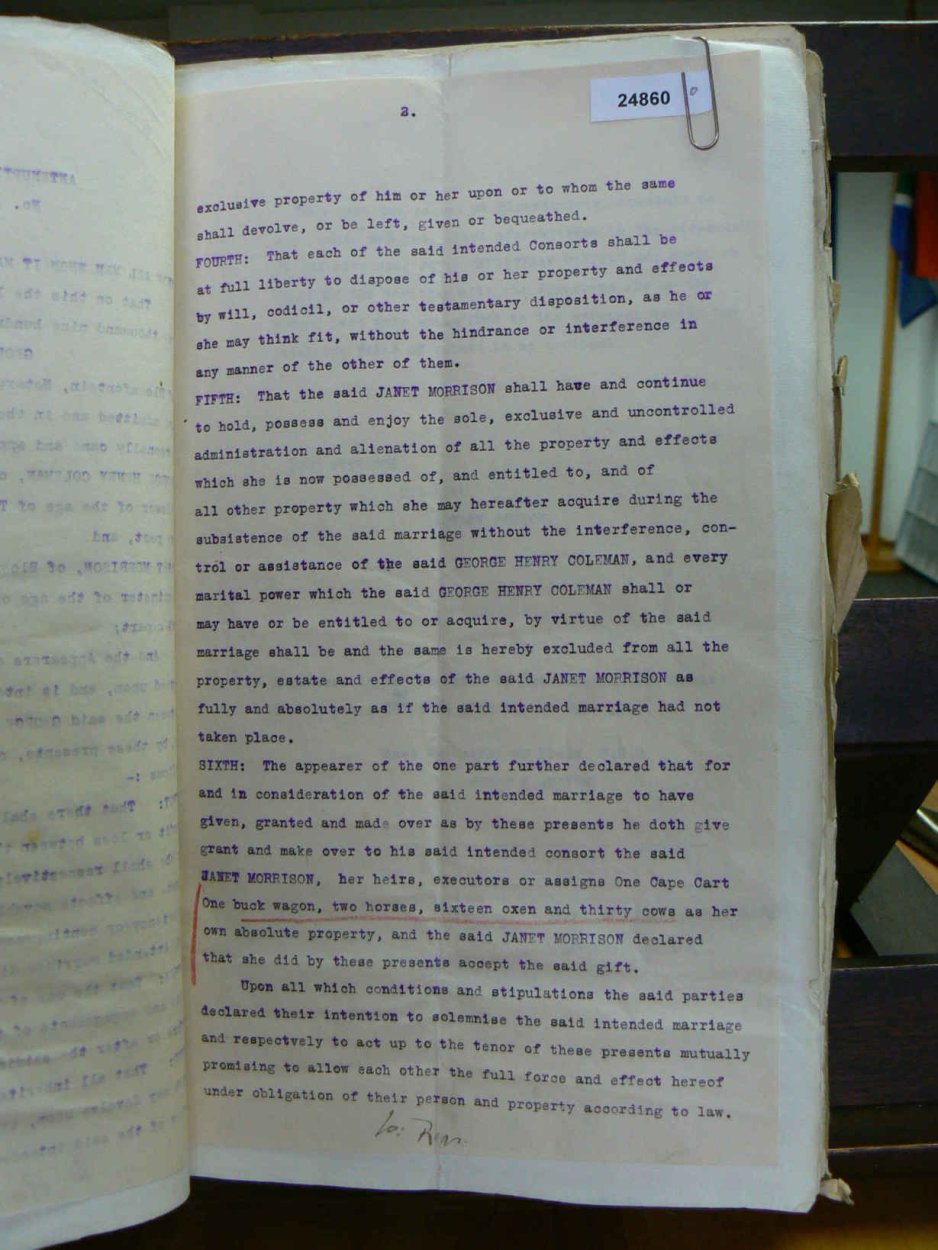 2.
24860
exclusive property of him or her upon or to whom the same
shall devolve, or be left, given or bequeathed.
FOURTH: That each of the said intended Consorts shall be
at full liberty to dispose of his or her property and effects
by will, codicil, or other testamentary disposition, as he or
she may think fit, without the hindrance or interference in
any manner of the other of them.
FIFTH: That the said JANET MORRISON shall have and continue
to hold, possess and enjoy the sole, exclusive and uncontrolled
administration and alienation of all the property and effects
which she is now possessed of, and entitled to, and of
all other property which she may hereafter acquire during the
subsistence of the said marriage without the interference, con-
trol or assistance of the said GEORGE HENRY COLEMAN, and every
marital power which the said GEORGE HENRY COLEMAN shall or
may have or be entitled to or acquire, by virtue of the said
marriage shall be and the same is hereby excluded from all the
property, estate and effects of the said JANET MORRISON as
fully and absolutely as if the said intended marriage had not
taken place.
SIXTH: The appearer of the one part further declared that for
and in consideration of the said intended marriage to have
given, granted and made over as by these presents he doth give
grant and make over to his said intended consort the said
JANET MORRISON, her heirs, executors or assigns One Cape Cart
One buck wagon, two horses, sixteen oxen and thirty cows as her
own absolute property, and the said JANET MORRISON declared
that she did by these presents accept the said gift.
Upon all which conditions and stipulations the said parties
declared their intention to solemnise the said intended marriage
and respectvely to act up to the tenor of these presents mutually
promising to allow each other the full force and effect hereof
under obligation of their person and property according to law.